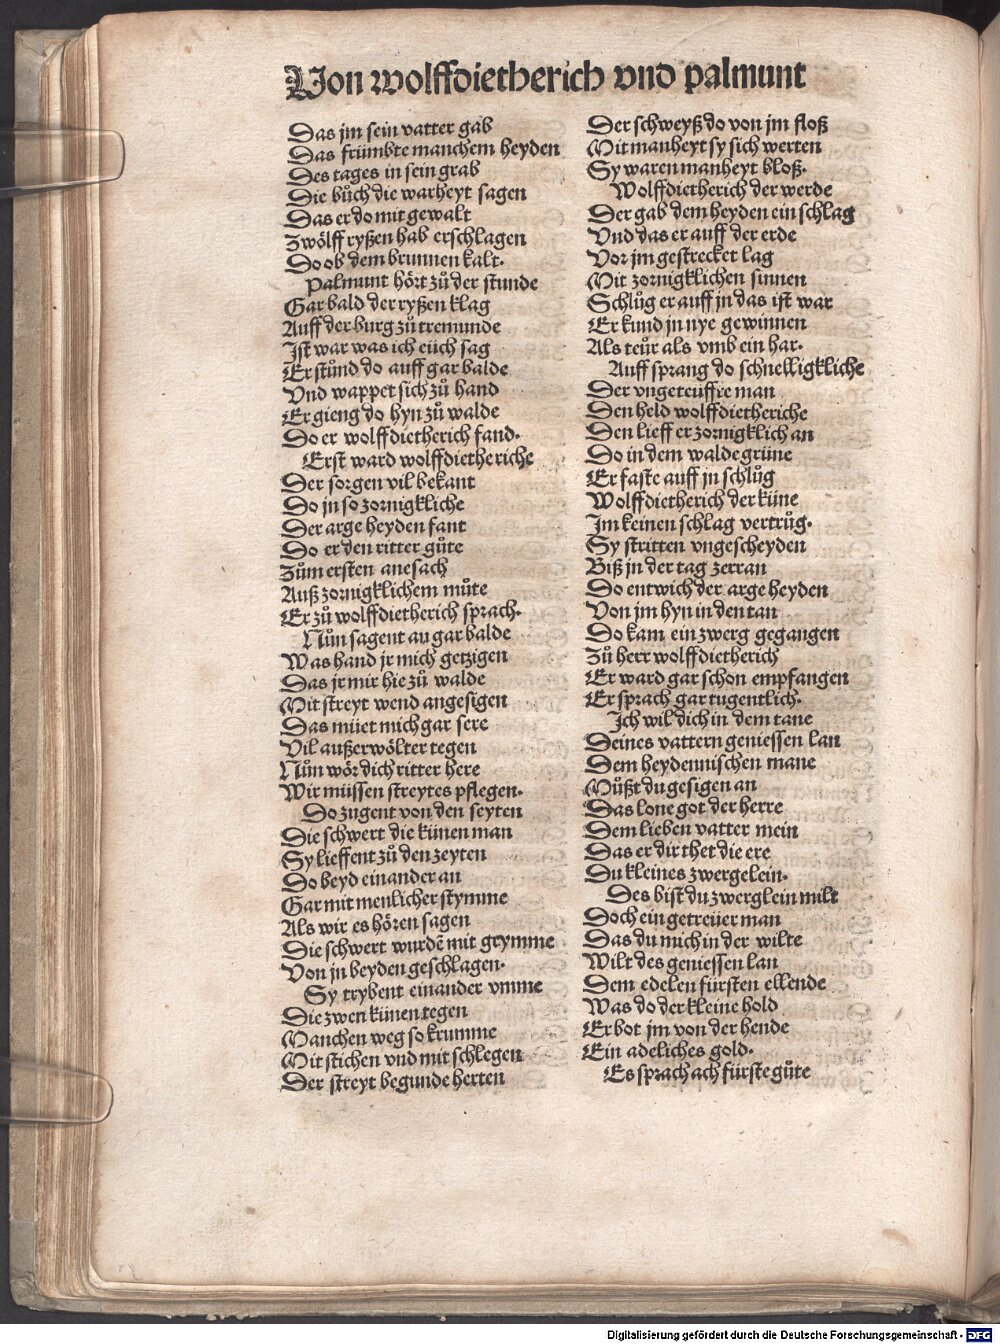 Von wolffdietherich vnd palmunt
Das jm sein vatter gab
Das frümbte manchem heyden
Des tages in sein grab
Die bůch die warheyt sagen
Das er do mit gewalt
Zwölff ryßen hab erschlagen
Do ob dem brunnen kalt.
Palmunt hört zů der stunde
Gar bald der ryßen klag
Auff der burg zů tremunde
Ist war was ich eüch sag
Er stůnd do auff gar balde
Vnd wappet sich zů hand
Er gieng do hyn zů walde
Do er wolffdietherich fand.
Erst ward wolffdietheriche
Der sorgen vil bekant
Do jn so zornigkliche
Der arge heyden fant
Do er den ritter gůte
Zům ersten anesach
Auß zornigklichem můte
Er zů wolffdietherich sprach.
Nůn sagent au gar balde
Was hand jr mich getzigen
Das jr mir hie zů walde
Mit streyt wend angesigen
Das müet mich gar sere
Vil außerwölter tegen
Nůn wör dich ritter here
Wir müssen streytes pflegen.
Do zugent von den seyten
Die schwert die künen man
Sy lieffent zů den zeyten
Do beyd einander an
Gar mit menlicher stymme
Als wir es hören sagen
Die schwert wurdē mit grymme
Von jn beyden geschlagen.
Sy trybent einander vmme
Die zwen künen tegen
Manchen weg so krumme
Mit stichen vnd mit schlegen
Der streyt begunde herten
Der schweyß do von jm floß
Mit manheyt sy sich werten
Sy waren manheyt bloß.
Wolffdietherich der werde
Der gab dem heyden ein schlag
Vnd das er auff der erde
Vor jm gestrecket lag
Mit zornigklichen sinnen
Schlůg er auff jn das ist war
Er kund jn nye gewinnen
Als teür als vmb ein har.
Auff sprang do schnelligkliche
Der vngeteuffte man
Den held wolffdietheriche
Den lieff er zornigklich an
Do in dem walde grüne
Er faste auff jn schlůg
Wolffdietherich der küne
Im keinen schlag vertrůg.
Sy stritten vngescheyden
Biß jn der tag zerran
Do entwich der arge heyden
Von jm hyn in den tan
Do kam ein zwerg gegangen
Zů herr wolffdietherich
Er ward gar schon empfangen
Er sprach gar tugentlich.
Ich wil dich in dem tane
Deines vattern geniessen lan
Dem heydennischen mane
Můßt du gesigen an
Das lone got der herre
Dem lieben vatter mein
Das er dir thet die ere
Du kleines zwergelein.
Des bist du zwerglein milt
Doch ein getreüer man
Das du mich in der wilte
Wilt des geniessen lan
Dem edelen fürsten ellende
Was do der kleine hold
Er bot jm von der hende
Ein adeliches gold.
Es sprach ach fürste gůte
Digitalisierung gefördert durch die Deutsche Forschungsgemeinschaft - DFG